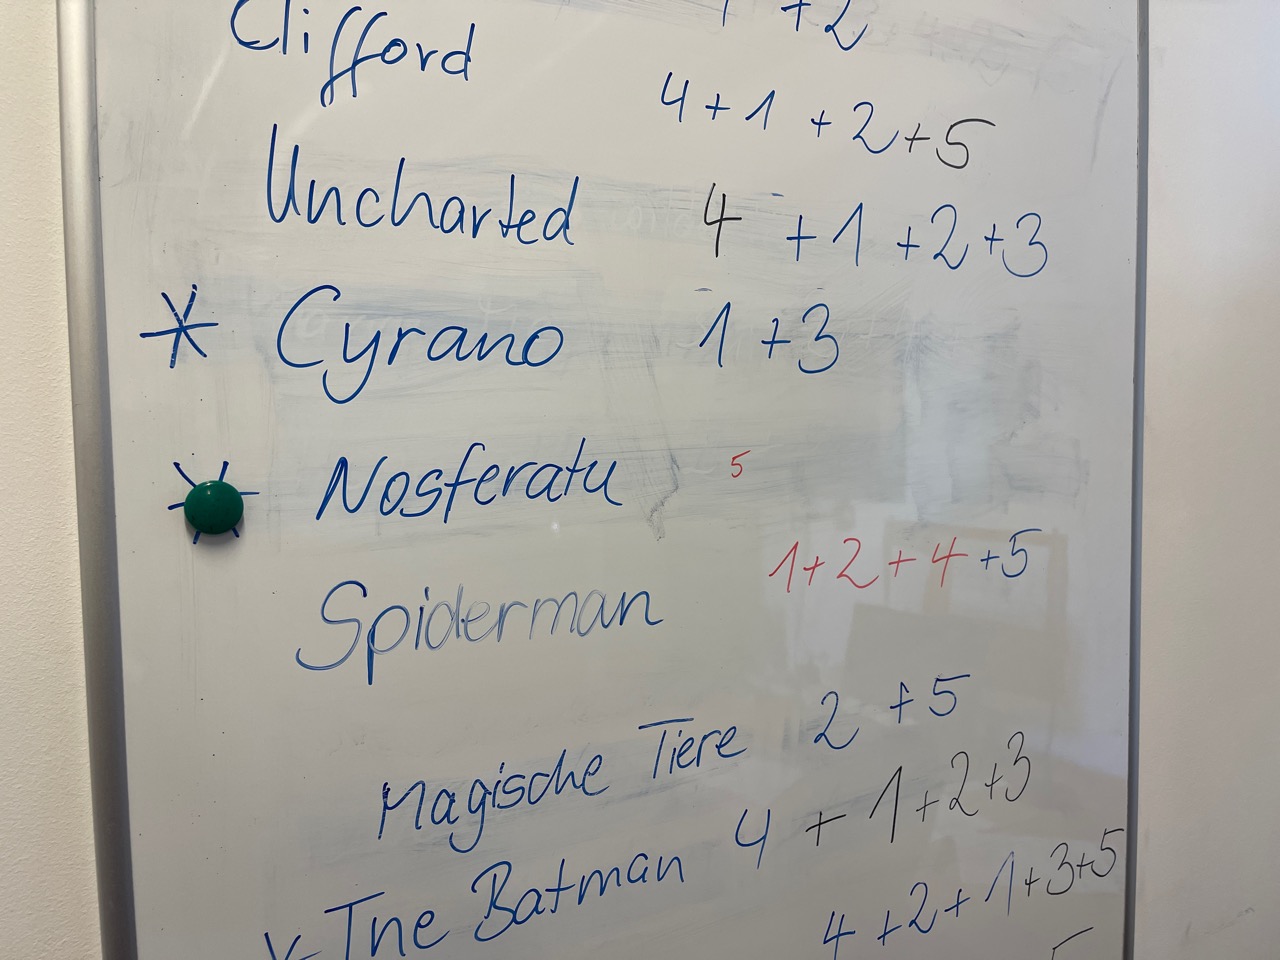 Clifford +2
4+1+2+5
Uncharted 4+1+2+3
* Cyrano 1+3
Nosferatu 5
1+2+4+5
Spiderman
Magische Tiere 2+5
The Batman 4+1+2+3
4+2+1+3+5